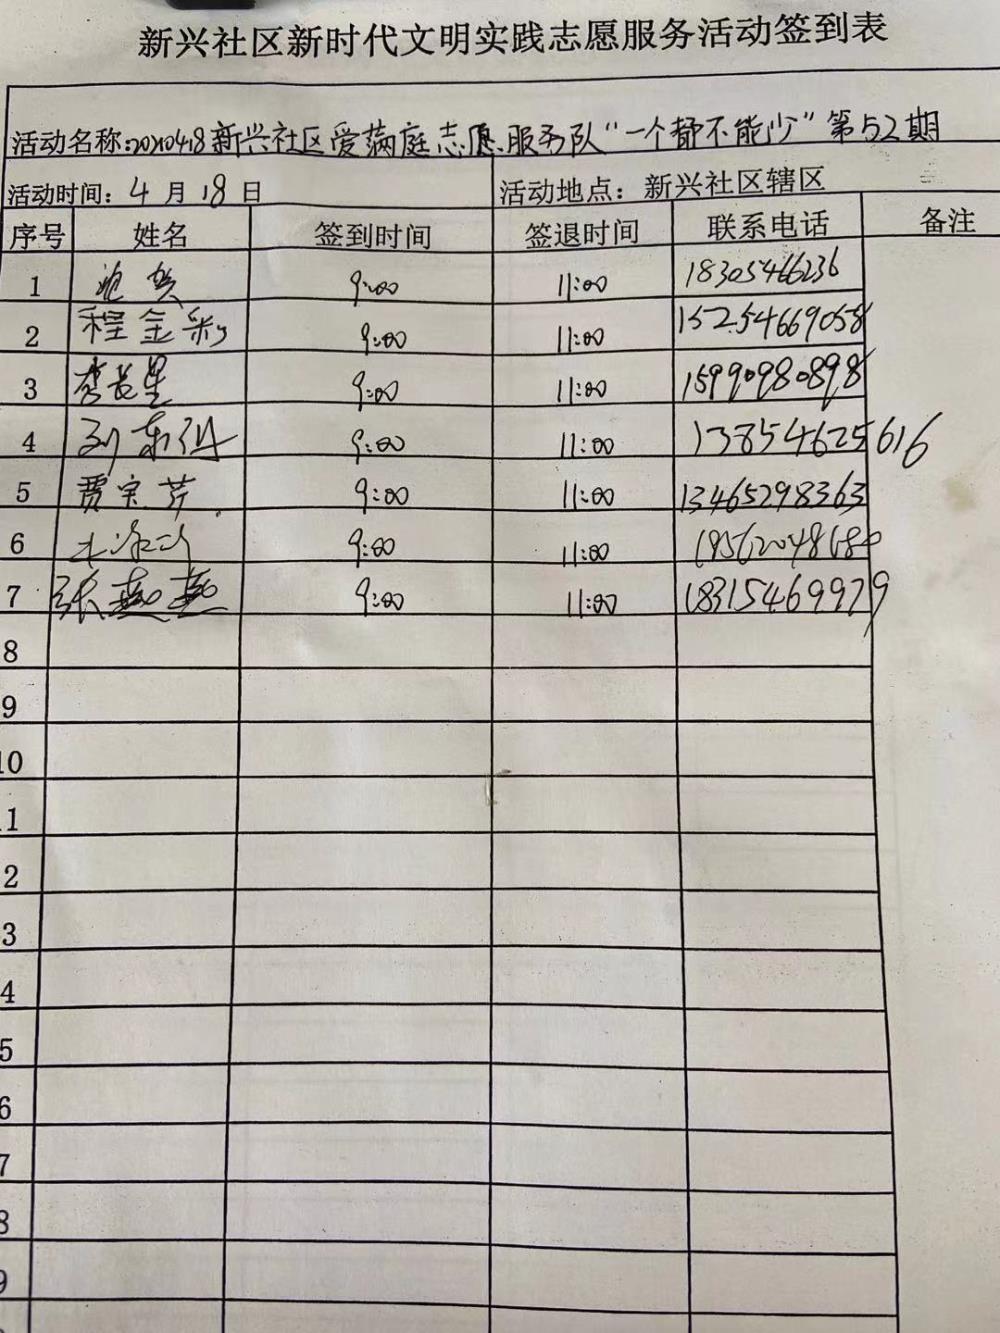 新兴社区新时代文明实践志愿服务活动签到表
活动名称:20210418新兴社区爱满庭志愿服务队“一个都不能少”第52期
活动时间: 4 月 18 日 活动地点: 新兴社区辖区
序号 姓名 签到时间 签退时间 联系电话 备注
1 9:00 11:00 18305466236
2 程金彩 9:00 11:00 15254669058
3 李长星 9:00 11:00 15990980898
4 刘东 9:00 11:00 13854625616
5 贾宝芹 9:00 11:00 13465298363
6 9:00 11:00 19562048680
7 张燕燕 9:00 11:00 18315469979
8
9
10
1
2
3
4
5
6
7
8
9